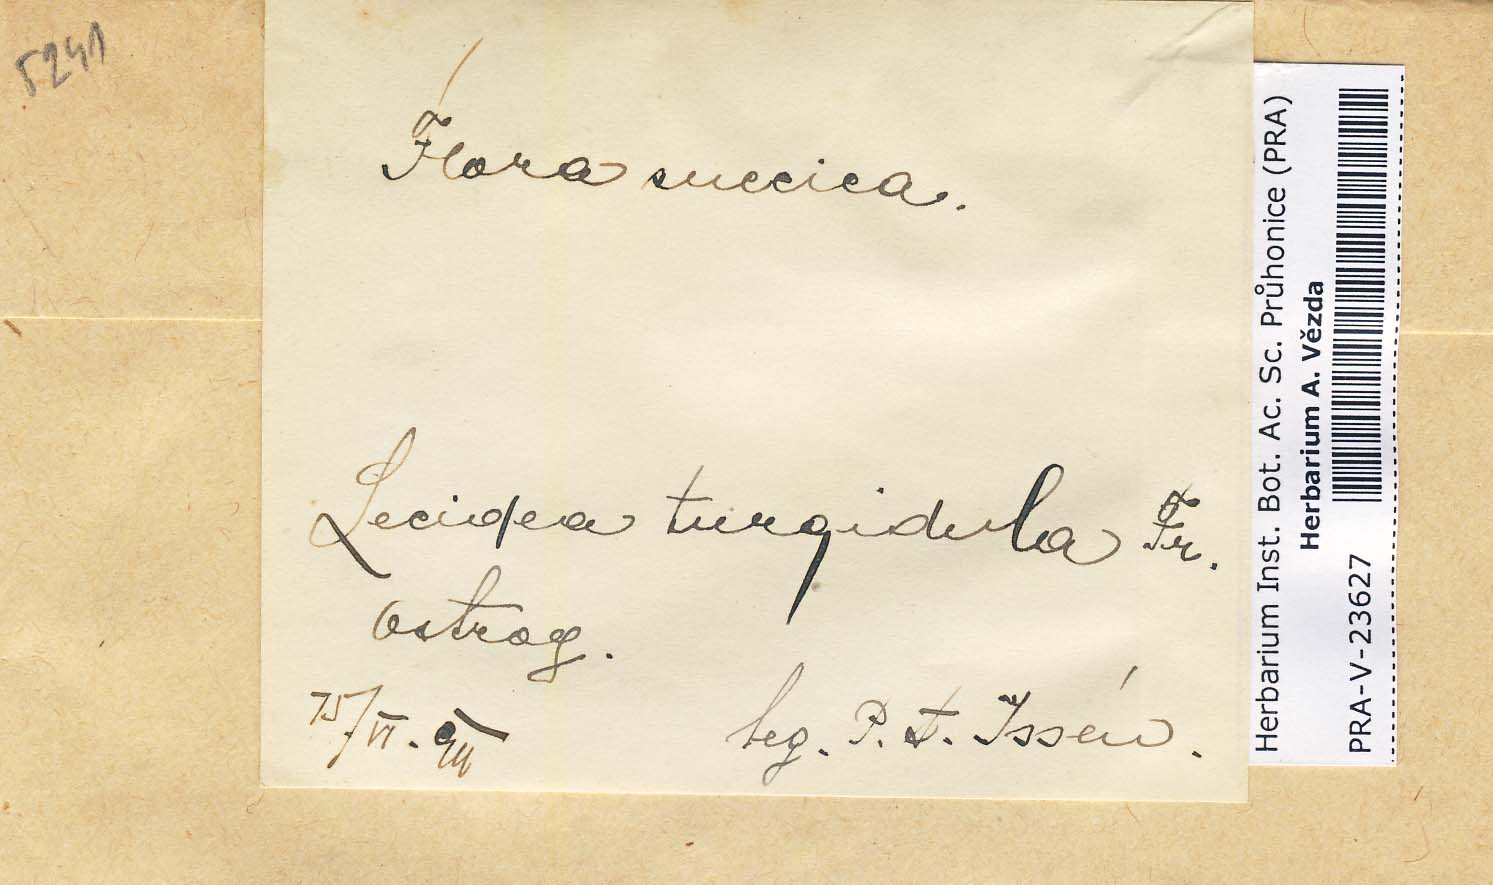 5241
Flora suecica.
Lecidea turgidula Fr.
Ostrog.
leg. P. F. Issén.
Herbarium Inst. Bot. Ac. Sc. Průhonice (PRA)
Herbarium A. Vězda
PRA-V-23627